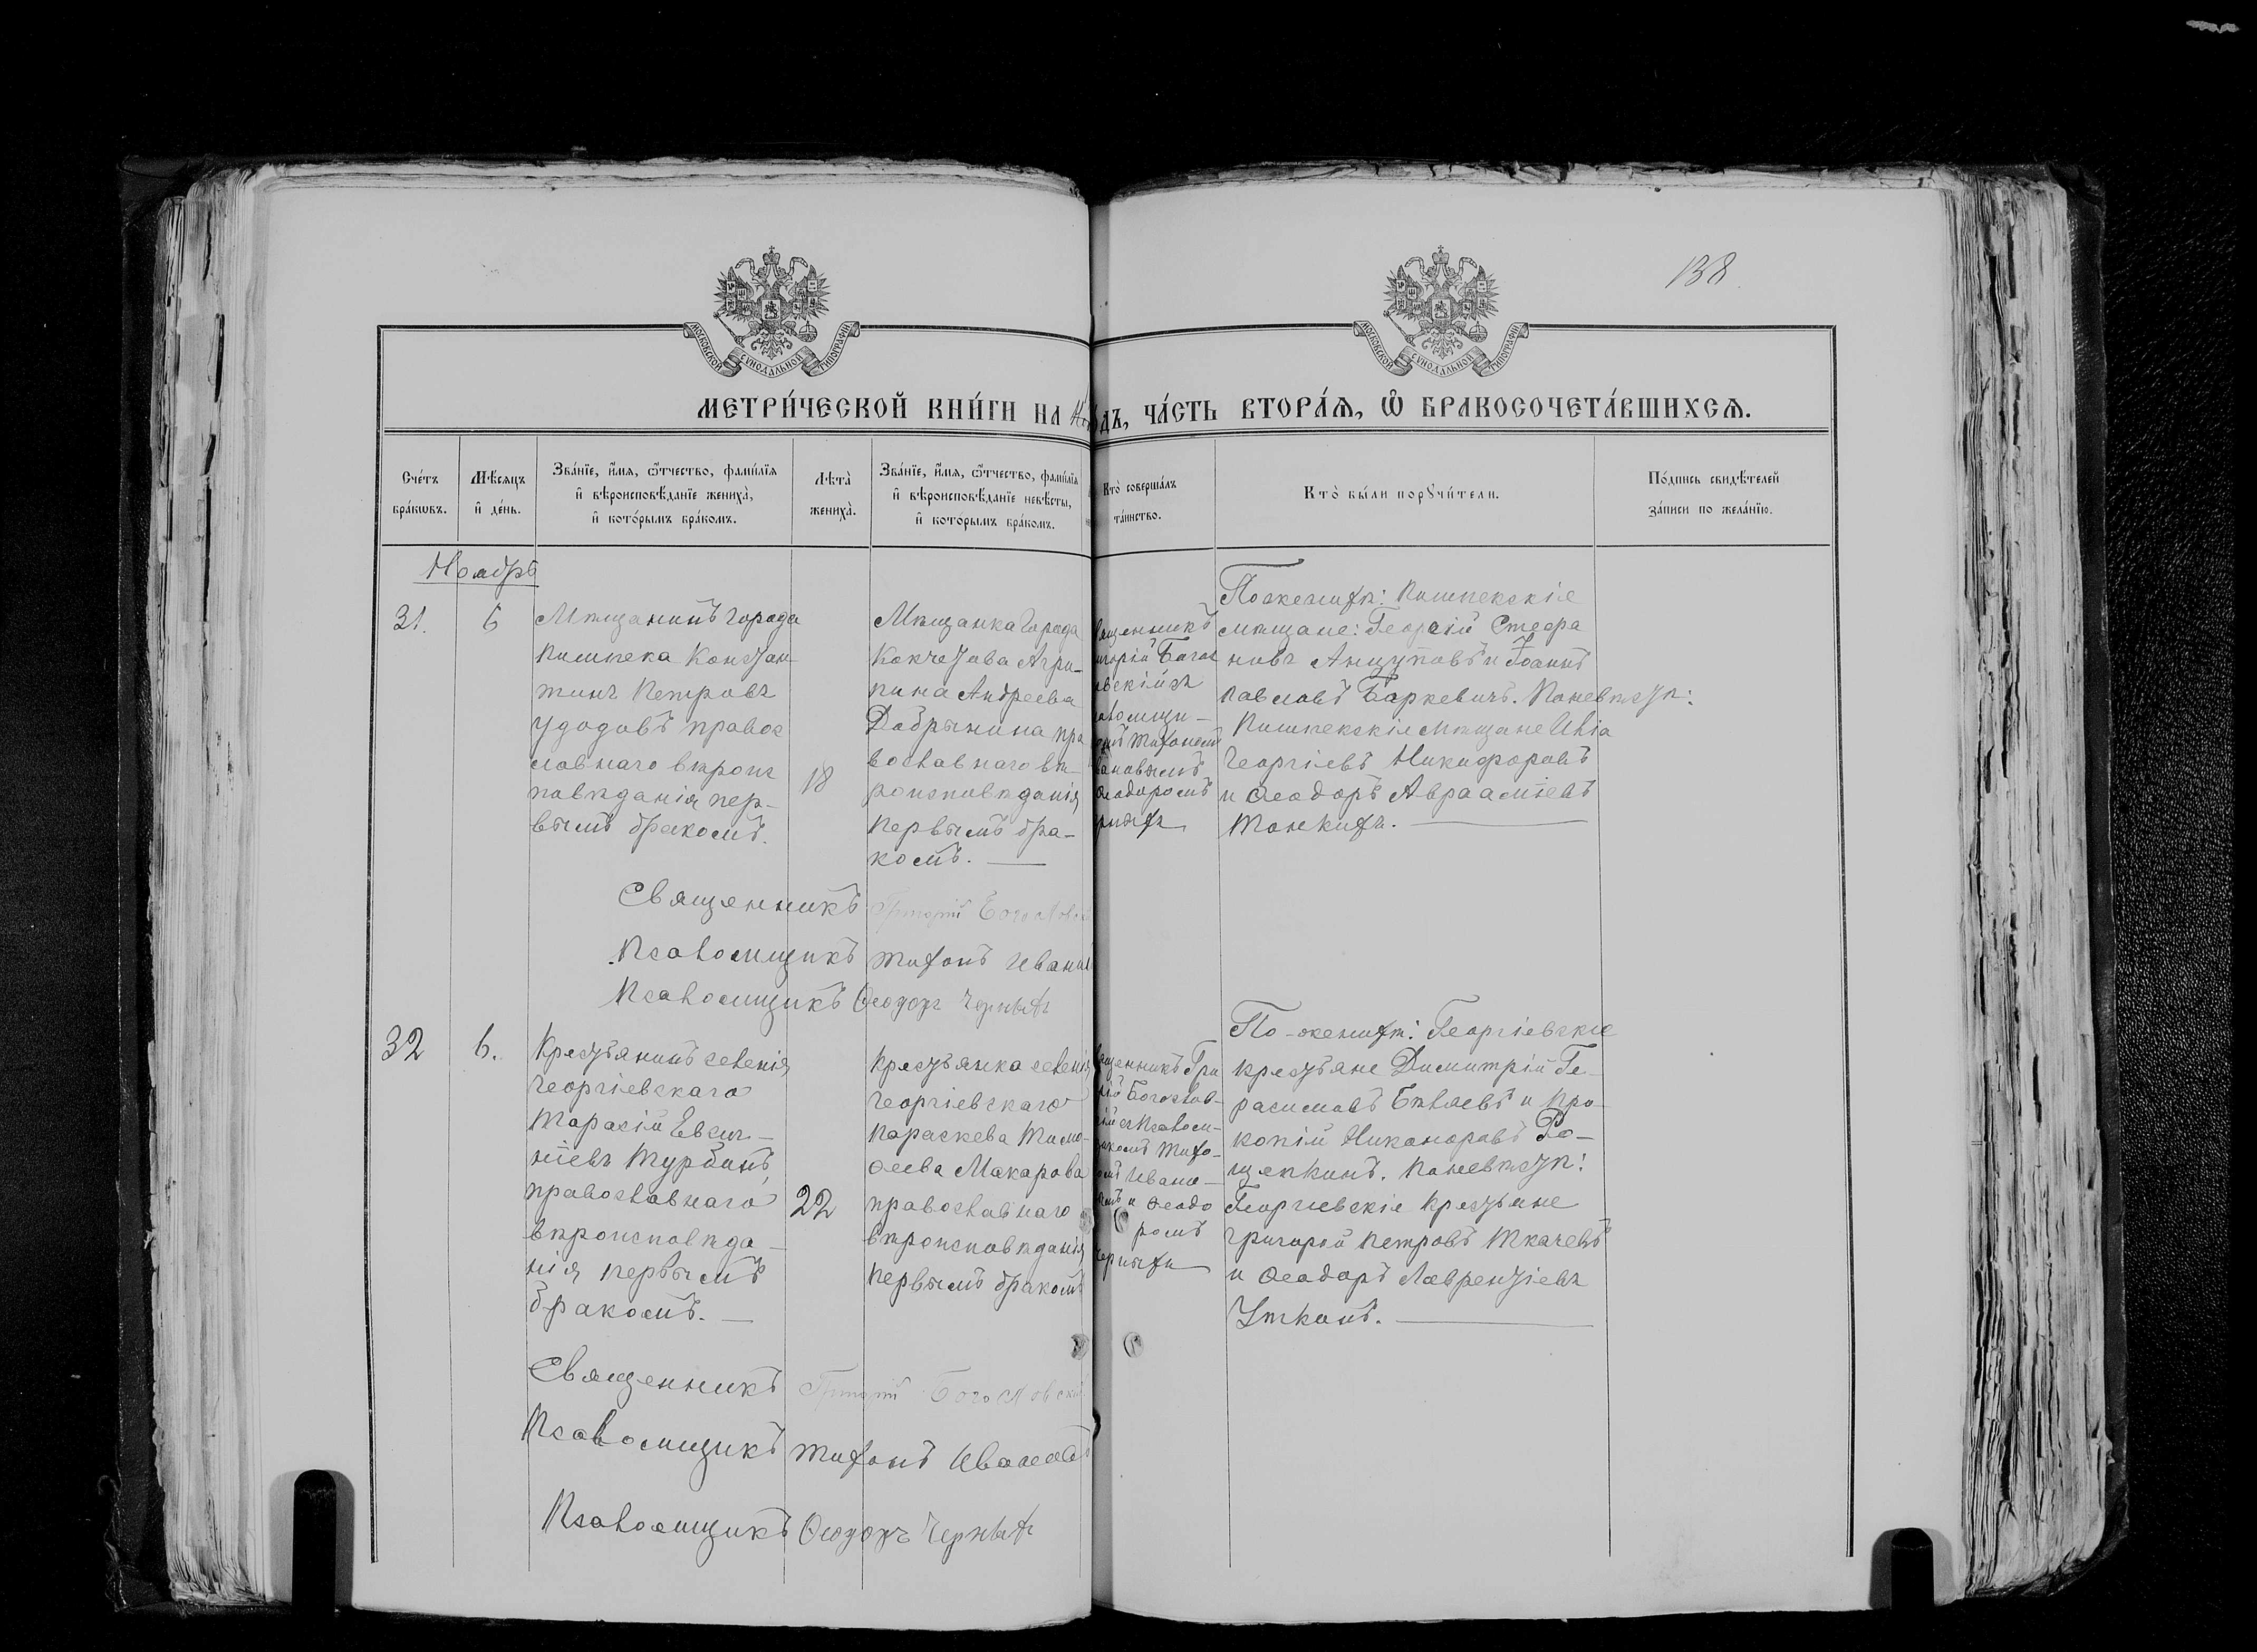 138
МОСКОВСКОЙ СѴНОДАЛЬНОЙ ТИПОГРАФІИ
МОСКОВСКОЙ СѴНОДАЛЬНОЙ ТИПОГРАФІИ
МЕТРИ́ЧЕСКОЙ КНИ́ГИ НА
ДЪ, ЧА́СТЬ ВТОРА́Ѧ, Ѽ БРАКОСОЧЕТА́ВШИХСѦ.
Сче́тъ
бра́кѡвъ.
Мѣ́сяцъ
и҆ де́нь.
Зва́нїе, и҆́мя, ѻ҆́тчество, фами́лїя
и҆ вѣроисповѣ́данїе жениха̀,
и҆ кото́рымъ бра́комъ.
Лѣта̀
жениха̀.
Зва́нїе, и҆́мя, ѻ҆́тчество, фами́лїя
и҆ вѣроисповѣ́данїе невѣ́сты,
и҆ кото́рымъ бра́комъ.
Кто̀ соверша́лъ
та́инство.
Кто̀ бы́ли порꙋчи́тели.
По́дпись свидѣ́телей
за́писи по жела́нїю.
Ноябрь
31.
6
Мѣщанинъ города
Пишпека Констан-
тинъ Петровъ
Удодовъ правос
лавнаго вѣроис
повѣданія пер-
вымъ бракомъ.
18
Мѣщанка города
Кокчетава Агри-
пина Андреева
Добрынина пра
вославнаго вѣ-
роисповѣданія
первымъ бра-
комъ.
ященникъ
игорій Богос
вскій съ
аломщи-
омъ Тихономъ
вановымъ
Ѳеодоромъ
рныхъ
По женихѣ: Пишпекскіе
мѣщане: Георгій Стефа
новъ Анцуповъ и Іоаннъ
Павловъ Баркевичъ. По невѣстѣ:
Пишпекскіе мѣщане Илія
Георгіевъ Никифоровъ
и Ѳеодоръ Авраамiевъ
Тонкихъ.
Священникъ Григорій Богослов
Псаломщикъ Тихонъ Иванов
Псаломщикъ Ѳеодоръ Черныхъ
32
6.
Крестьянинъ селенія
Георгіевскаго
Тарасій Евсиг-
ніевъ Турбинъ,
православнаго
вѣроисповѣда-
нія первымъ
бракомъ.
22
Крестьянка селенія
Георгіевскаго
Параскева Тимо-
ѳеева Макарова
православнаго
вѣроисповѣданія
первымъ бракомъ
ященникъ Гри
рій Богослов-
кій съ псалом-
щикомъ Тихо-
омъ Ивано-
вымъ и Ѳеодо
ромъ
Черныхъ
По-женихѣ: Георгіевскіе
крестьяне Димитрій Ге-
расимовъ Бѣляевъ и Про-
копій Никаноровъ Ро-
щепкинъ. По невѣстѣ:
Георгіевскіе крестьяне
Григорій Петровъ Ткачевъ
и Ѳеодоръ Лаврентіевъ
Уткинъ.
Священникъ Григорій Богословскій
Псаломщикъ Тихонъ Ивановъ
Псаломщикъ Ѳеодоръ Черныхъ